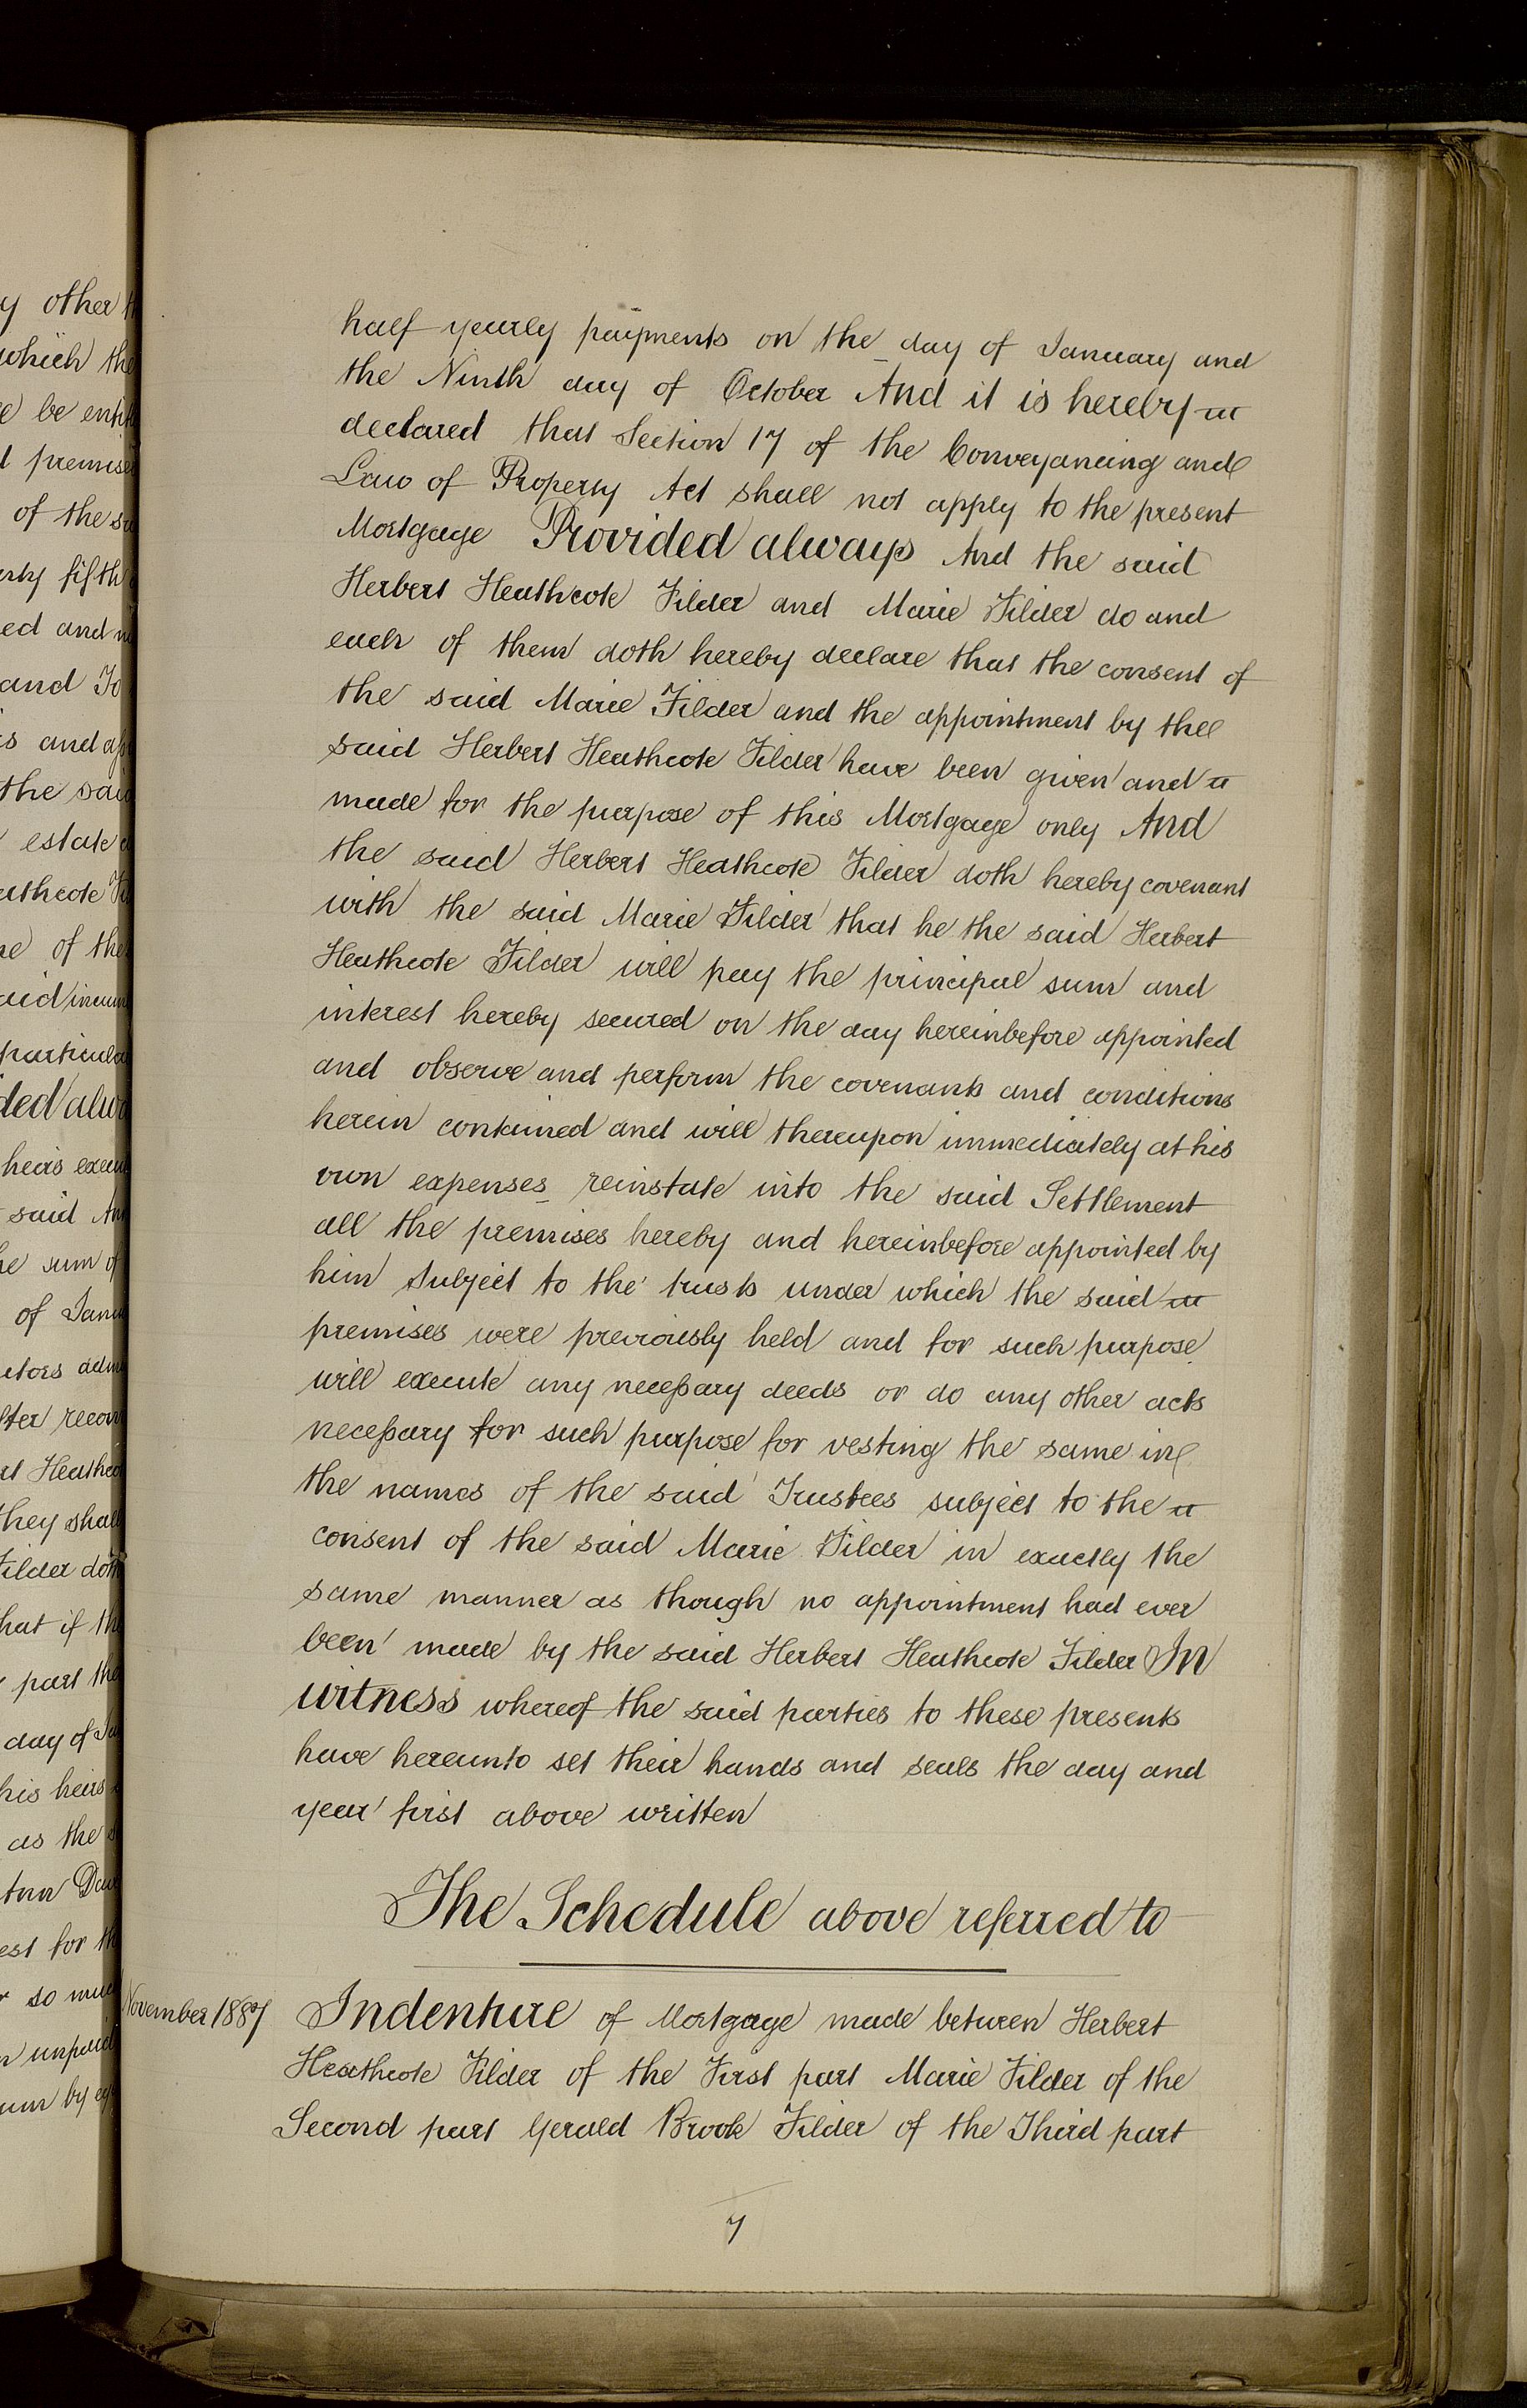 half yearly payments on the day of January and
the Ninth day of October And it is hereby
declared that Section 17 of the Conveyancing and
Law of Property Act shall not apply to the present
Mortgage Provided always And the said
Herbert Heathcote Filder and Marie Filder do and
each of them doth hereby declare that the consent of
the said Marie Filder and the appointment by the
said Herbert Heathcote Filder have been given and
made for the purpose of this Mortgage only And
the said Herbert Heathcote Filder doth hereby covenant
with the said Marie Filder that he the said Herbert
Heathcote Filder will pay the principal sum and
interest hereby secured on the day hereinbefore appointed
and observe and perform the covenants and conditions
herein contained and will thereupon immediately at his
own expenses reinstate into the said Settlement
all the premises hereby and hereinbefore appointed by
him Subject to the trusts under which the said
premises were previously held and for such purpose
will execute any necessary deeds or do any other acts
necessary for such purpose for vesting the same in
the names of the said Trustees subject to the
consent of the said Marie Filder in exactly the
same manner as though no appointment had ever
been made by the said Herbert Heathcote Filder In
witness whereof the said parties to these presents
have hereunto set their hands and seals the day and
year first above written
The Schedule above referred to
November 1887 Indenture of Mortgage made between Herbert
Heathcote Filder of the First part Marie Filder of the
Second part Gerald Brook Filder of the Third part
7